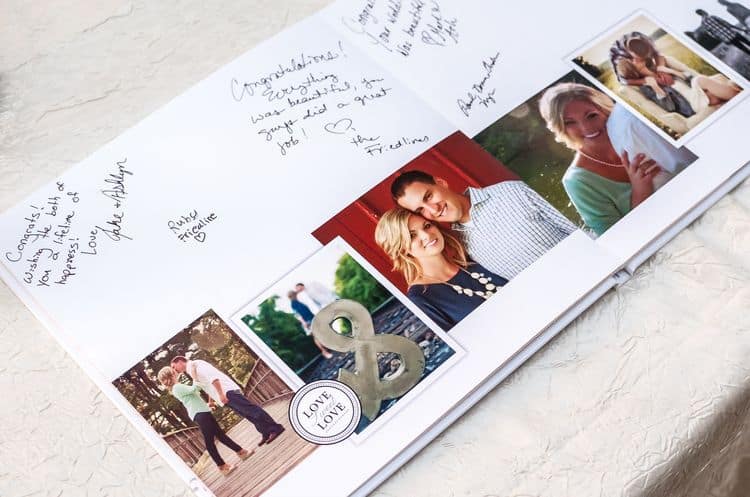 Congrats!
Wishing the both of
you a lifetime of
happiness!
Love,
Jake + Ashlyn
Ruby
Friedline
Congratulations!
Everything
was beautiful, you
guys did a great
job!
the
Friedlines
Your
was beautiful
LOVE
LOVE